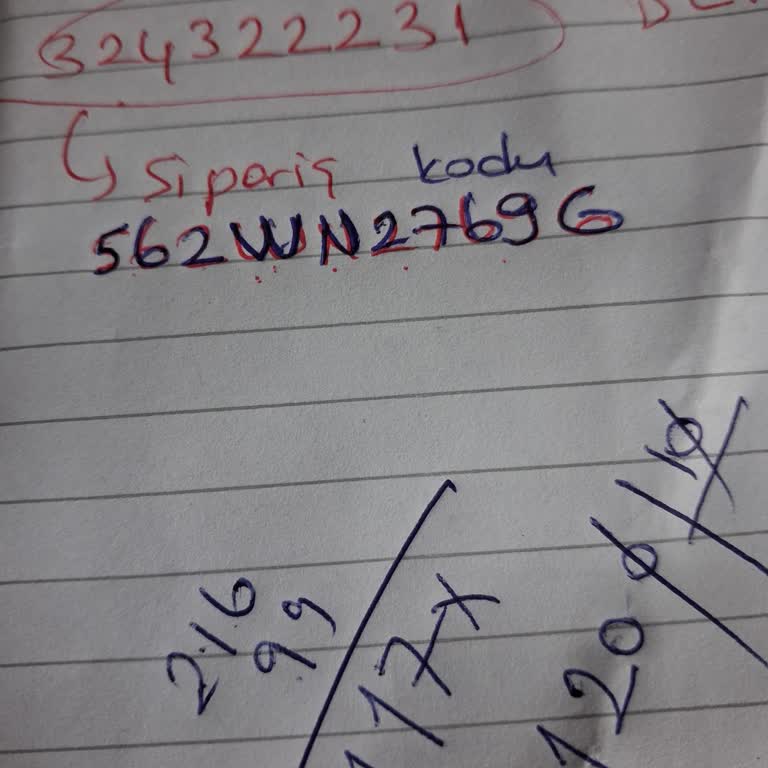 324322231
Sipariş kodu
562WN2769G
216
99
117
120